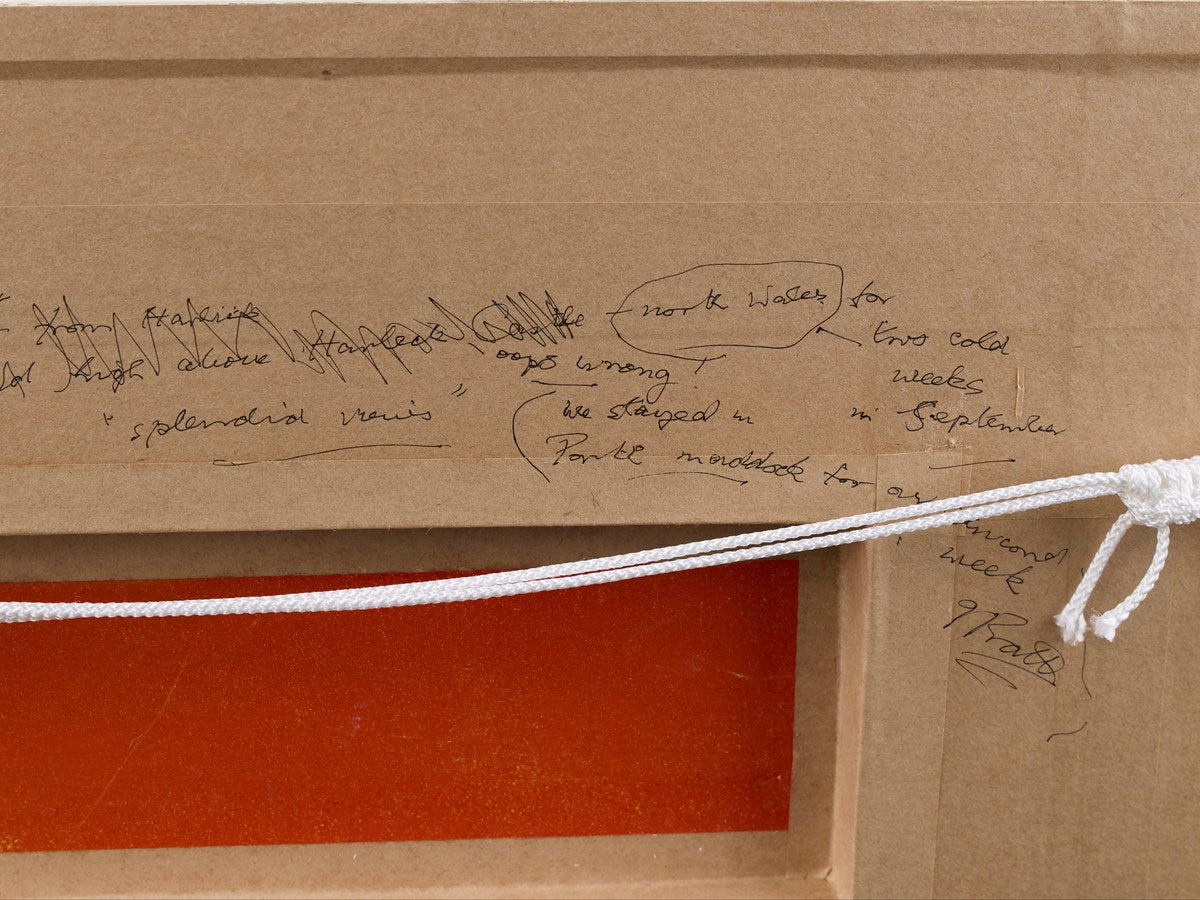 from Harlick
high above Harlech Castle
oops wrong!
"splendid views"
north Wales for
two cold
weeks
in September
(we stayed in
Porth maddock for our
second
week
Pratt